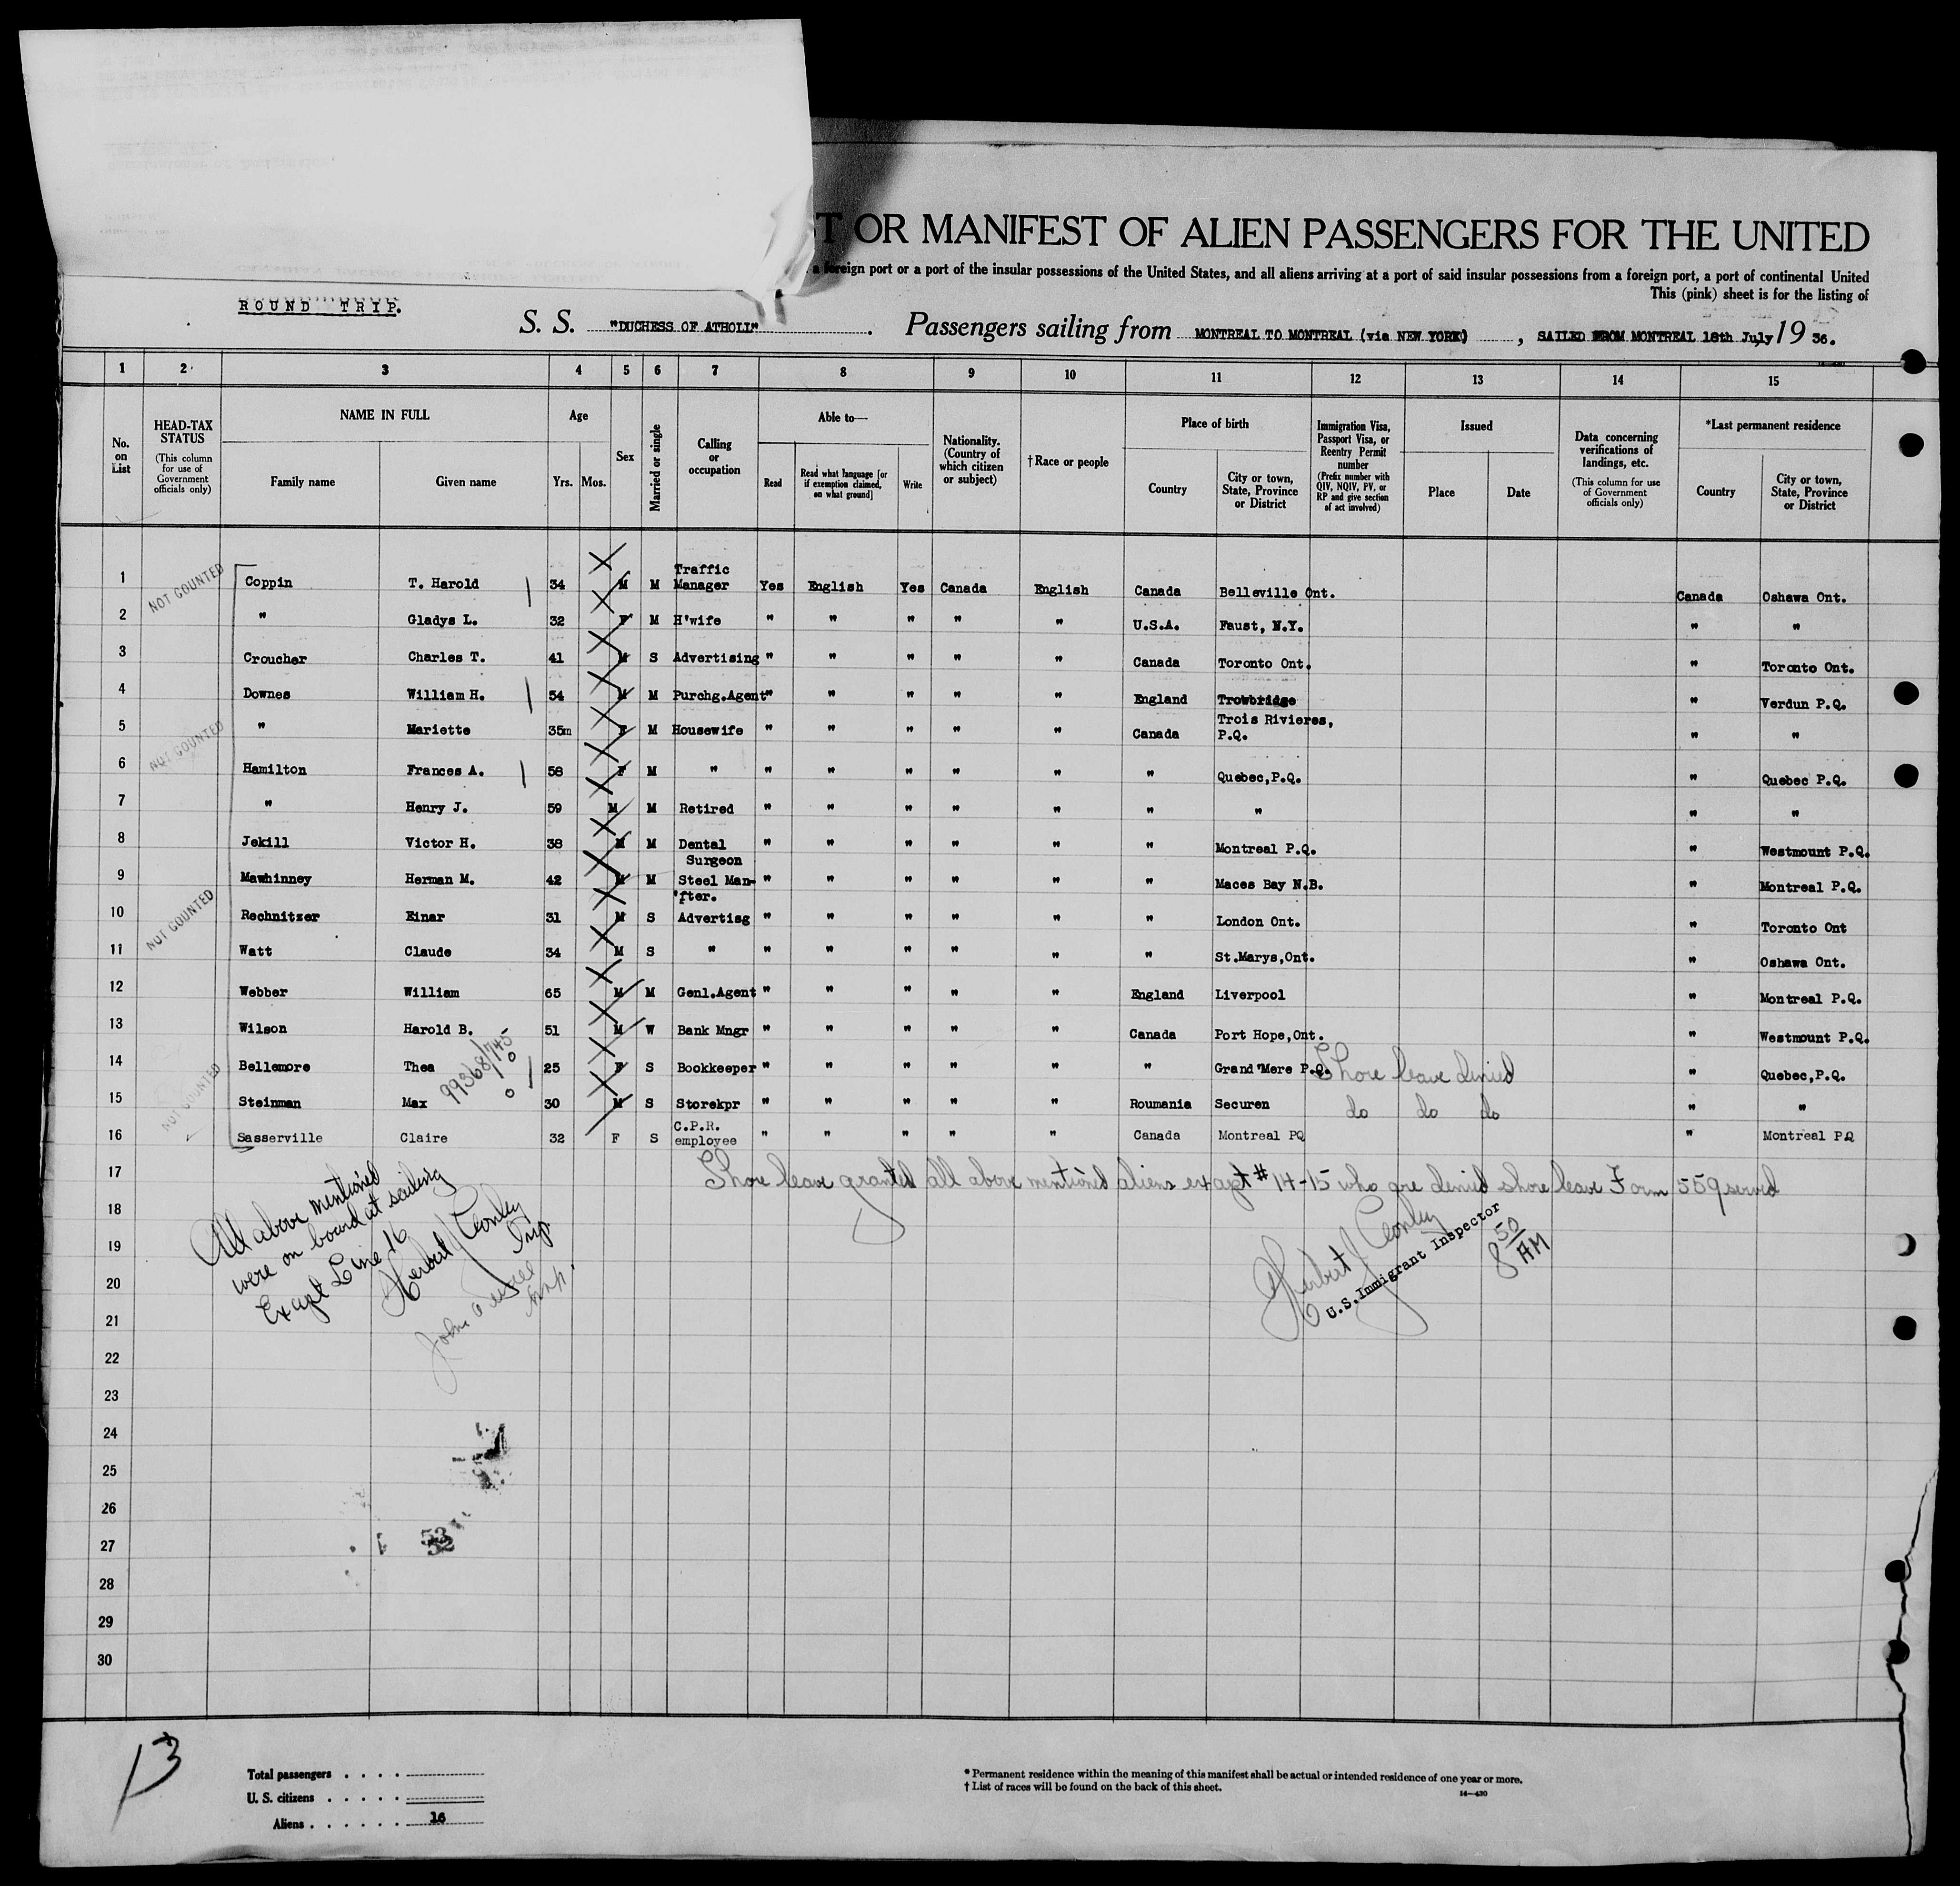 T OR MANIFEST OF ALIEN PASSENGERS FOR THE UNITED
a foreign port or a port of the insular possessions of the United States, and all aliens arriving at a port of said insular possessions from a foreign port, a port of continental United
This (pink) sheet is for the listing of
ROUND TRIP.
S. S. "DUCHESS OF ATHOLL". Passengers sailing from MONTREAL TO MONTREAL (via NEW YORK), SAILED FROM MONTREAL 18th July 19 36.
1 2 3 4 5 6 7 8 9 10 11 12 13 14 15
No. on List
HEAD-TAX STATUS
(This column for use of Government officials only)
NAME IN FULL
Family name Given name
Age
Yrs. Mos.
Sex
Married or single
Calling or occupation
Able to—
Read
Read what language [or if exemption claimed, on what ground]
Write
Nationality. (Country of which citizen or subject)
†Race or people
Place of birth
Country
City or town, State, Province or District
Immigration Visa, Passport Visa, or Reentry Permit number
(Prefix number with QIV, NQIV, PV, or RP and give section of act involved)
Issued
Place Date
Data concerning verifications of landings, etc.
(This column for use of Government officials only)
*Last permanent residence
Country
City or town, State, Province or District
NOT COUNTED
1 Coppin T. Harold 34 M M Traffic Manager Yes English Yes Canada English Canada Belleville Ont. Canada Oshawa Ont.
2 " Gladys L. 32 F M H'wife " " " " " U.S.A. Faust, N.Y. " "
3 Croucher Charles T. 41 M S Advertising " " " " " Canada Toronto Ont. " Toronto Ont.
4 Downes William H. 54 M M Purchg.Agent " " " " " England Trowbridge " Verdun P.Q.
NOT COUNTED
5 " Mariette 35m F M Housewife " " " " " Canada Trois Rivieres, P.Q. " "
6 Hamilton Frances A. 58 F M " " " " " " " Quebec,P.Q. " Quebec P.Q.
7 " Henry J. 59 M M Retired " " " " " " " " "
8 Jekill Victor H. 38 M M Dental Surgeon " " " " " " Montreal P.Q. " Westmount P.Q.
9 Mawhinney Herman M. 42 M M Steel Man-'fter. " " " " " " Maces Bay N.B. " Montreal P.Q.
NOT COUNTED
10 Rechnitzer Einar 31 M S Advertisg " " " " " " London Ont. " Toronto Ont
11 Watt Claude 34 M S " " " " " " " St.Marys,Ont. " Oshawa Ont.
12 Webber William 65 M M Genl.Agent " " " " " England Liverpool " Montreal P.Q.
13 Wilson Harold B. 51 M W Bank Mngr " " " " " Canada Port Hope,Ont. " Westmount P.Q.
99368/745
14 Bellemore Thea 25 F S Bookkeeper " " " " " " Grand'Mere P.Q. Shore leave denied " Quebec,P.Q.
NOT COUNTED
15 Steinman Max 30 M S Storekpr " " " " " Roumania Securen do do do " "
16 Sasserville Claire 32 F S C.P.R. employee " " " " " Canada Montreal PQ " Montreal PQ
17 Shore leave granted all above mentioned aliens except # 14-15 who are denied shore leave Form 559 served
18
19
20
21
22
23
24
25
26
27
28
29
30
All above mentioned
were on board at sailing
Except Line 16
Herbert J Conley
Insp.
John
Insp.
Herbert J Conley
U.S. Immigrant Inspector
8 50 AM
53
52
13
Total passengers
U. S. citizens
Aliens 16
* Permanent residence within the meaning of this manifest shall be actual or intended residence of one year or more.
† List of races will be found on the back of this sheet.
14—430